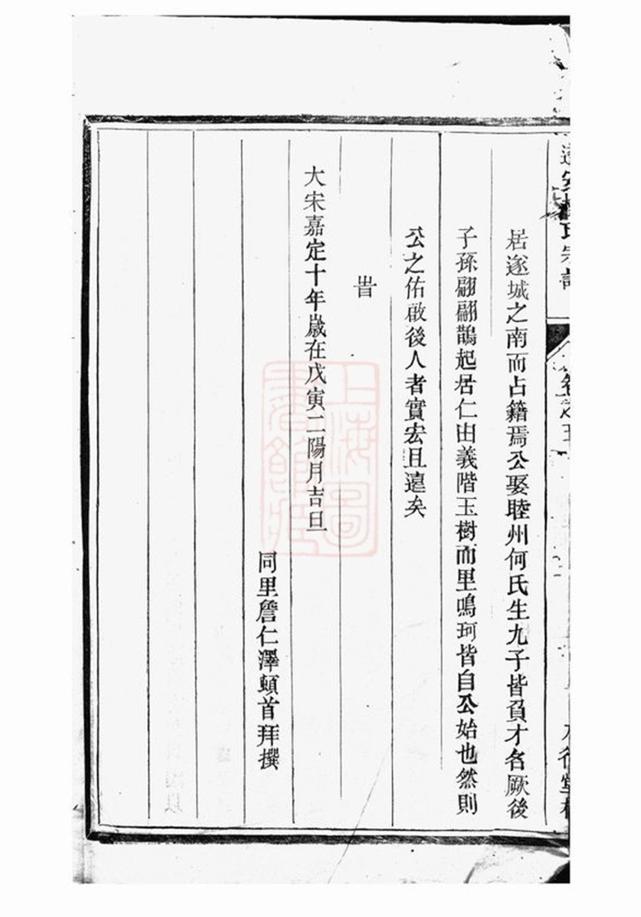 居遂城之南而占籍焉公娶睦州何氏生九子皆負才名厥後
子孫翩翩鵲起居仁由義階玉樹而里鳴珂皆自公始也然則
公之佑啟後人者實宏且遠矣
旹
大宋嘉定十年歲在戊寅二陽月吉旦
同里詹仁澤頓首拜撰
上海圖書館藏